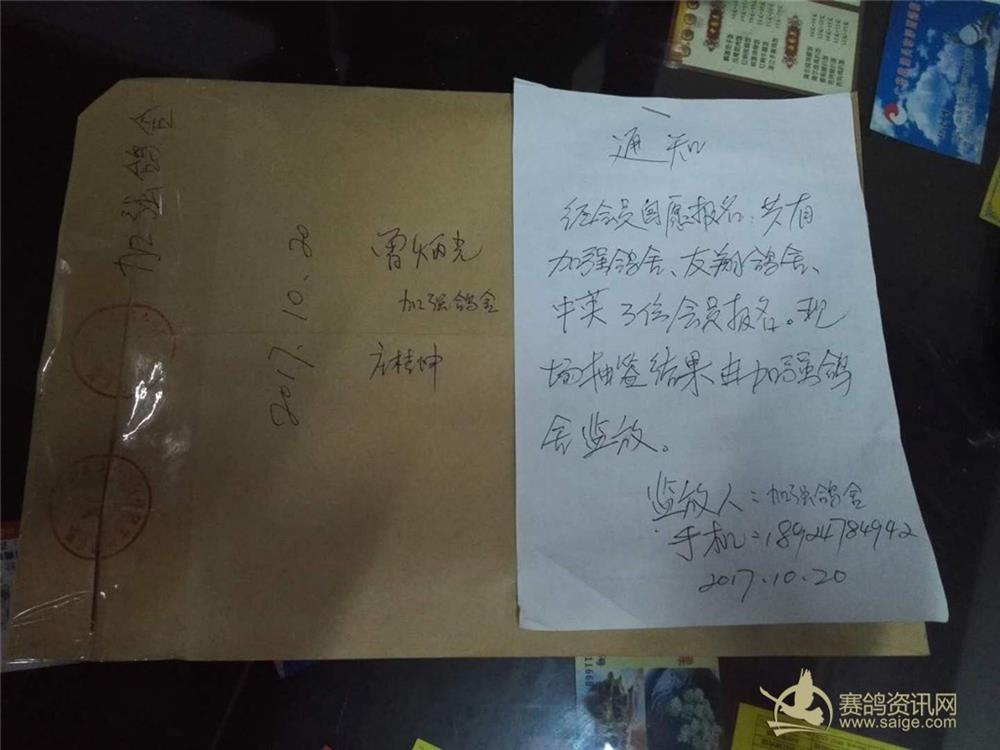 加强鸽舍
2017.10.20
曾炳光
加强鸽舍
庄桂坤
通知
经会员自愿报名,共有
加强鸽舍、友翔鸽舍、
中英3位会员报名。现
场抽签结果由加强鸽
舍监放。
监放人:加强鸽舍
手机:18924784942
2017.10.20
赛鸽资讯网
www.saige.com